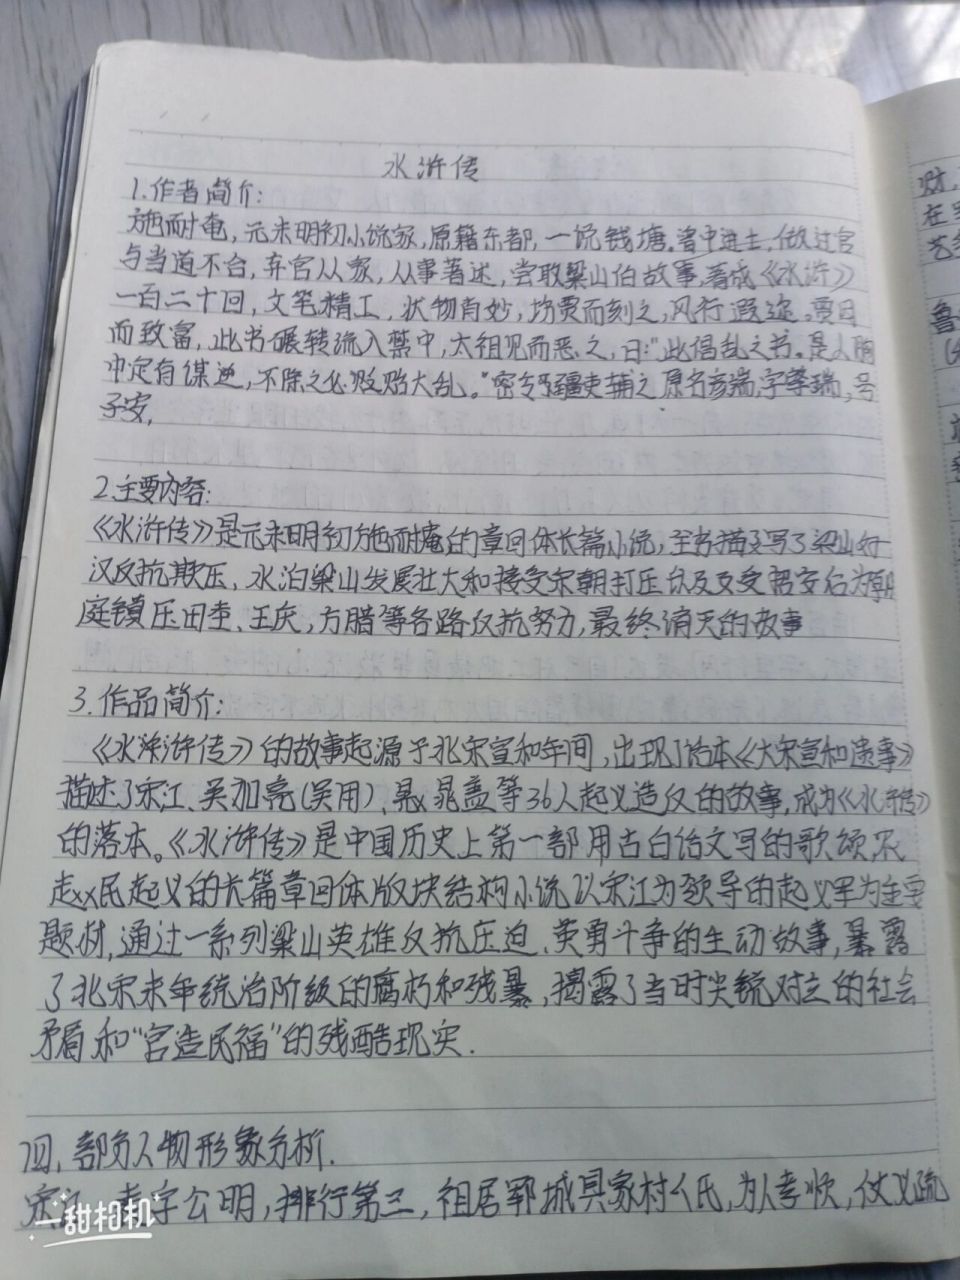 水浒传
1.作者简介:
施耐奄,元末明初小说家,原籍东都,一说钱塘。尝中进士,做过官
与当道不合,弃官从家,从事著述,尝取梁山伯故事,著成《水浒》
一百二十回,文笔精工,状物肖妙,坊贾而刻之,风行遐迩。贾因
而致富,此书碾转流入禁中,太祖见而恶之,曰:"此倡乱之书。是人胸
中定有谋逆,不除之必贻大乱。"密令疆吏辅之原名彦端,字肇瑞,号
子安,
2.主要内容:
《水浒传》是元末明初施耐庵的章回体长篇小说,全书描写了梁山好
汉反抗欺压、水泊梁山发展壮大和接受宋朝打压以及受招安后为朝
庭镇压田杢、王庆,方腊等各路反抗努力,最终消灭的故事
3.作品简介:
《水浒传》的故事起源于北宋宣和年间,出现了话本《大宋宣和遗事》
描述了宋江、吴加亮(吴用)、晁盖等36人起义造反的故事,成为《水浒传》
的落本。《水浒传》是中国历史上第一部用古白话文写的歌颂农
民起义的长篇章回体版块结构小说以宋江为领导的起义军为主要
题材,通过一系列梁山英雄反抗压迫、英勇斗争的生动故事,暴露
了北宋末年统治阶级的腐朽和残暴,揭露了当时尖锐对立的社会
矛盾和"官造民福"的残酷现实.
四,部分人物形象分析.
宋江,表字公明,排行第三,祖居郓城县家村人氏,为人孝顺,仗义疏
财,
在
艺
鲁
一甜相机